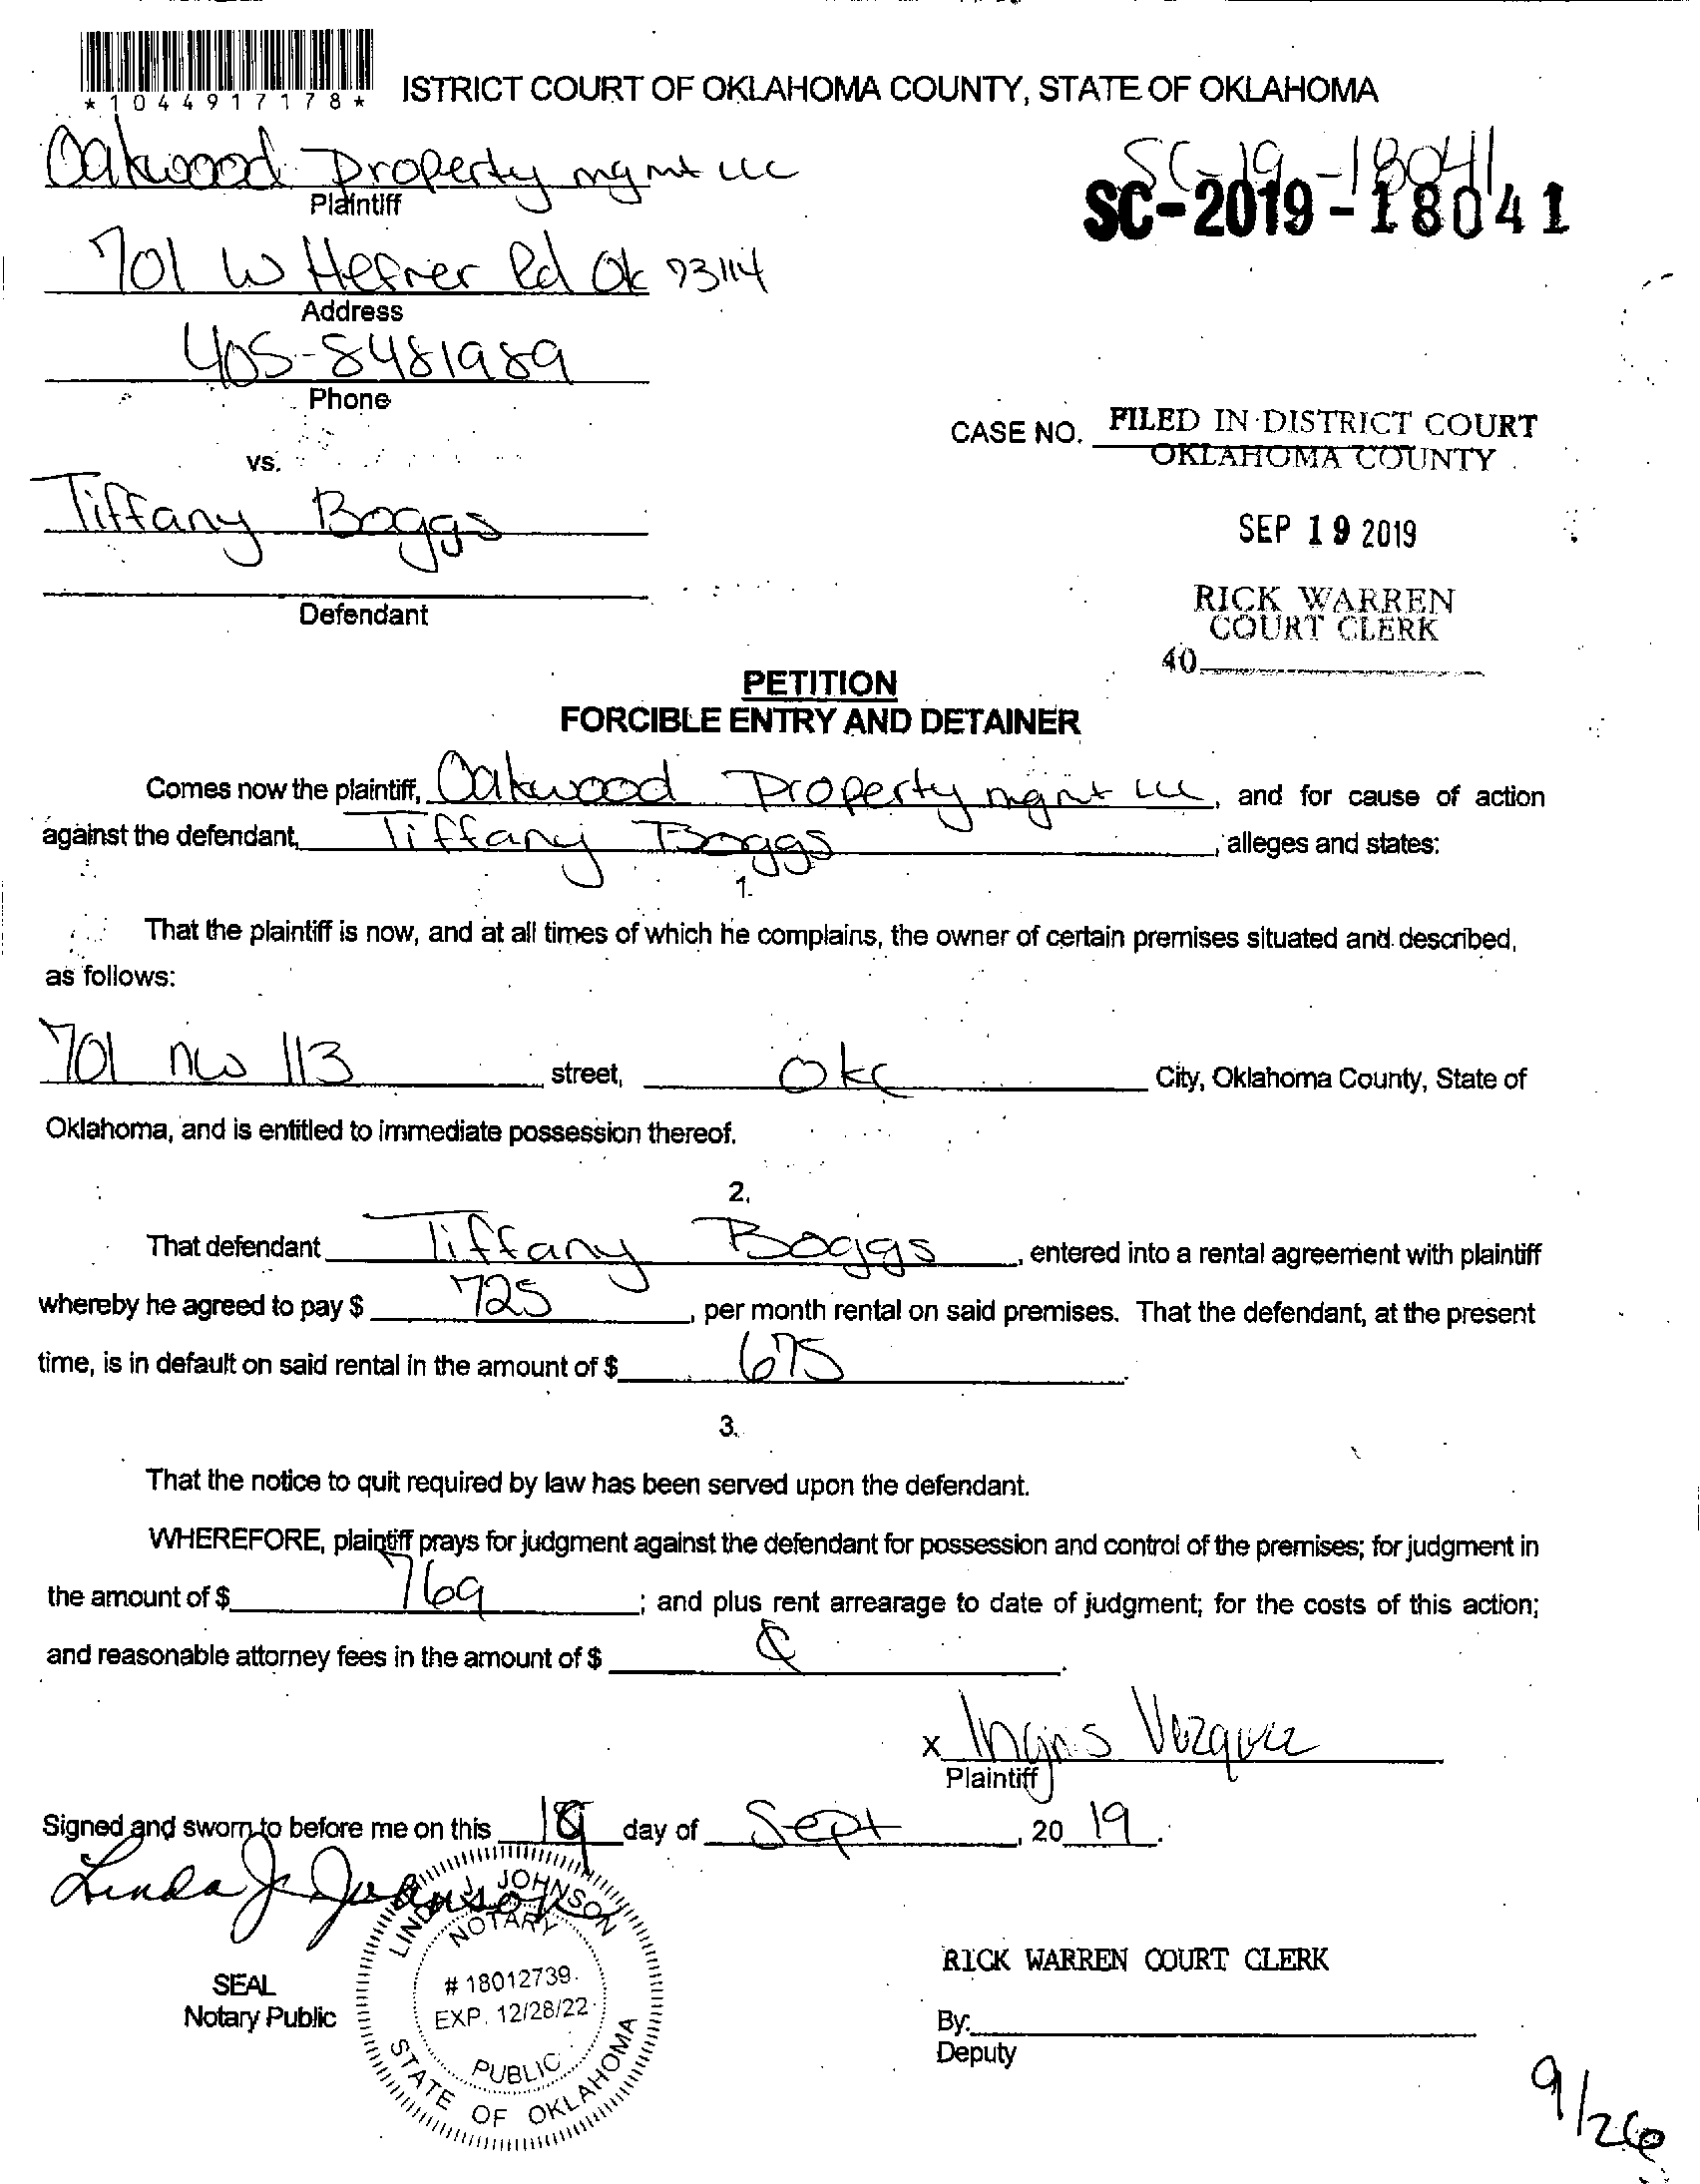 *1044917178*
ISTRICT COURT OF OKLAHOMA COUNTY, STATE OF OKLAHOMA
Oakwood Property mgmt LLC
Plaintiff
SC-19-18041
SC-2019-18041
701 W Hefner Rd Ok 73114
Address
405-8481989
Phone
CASE NO.
FILED IN DISTRICT COURT
OKLAHOMA COUNTY
vs.
Tiffany Boggs
SEP 19 2019
Defendant
RICK WARREN
COURT CLERK
40
PETITION
FORCIBLE ENTRY AND DETAINER
Comes now the plaintiff, Oakwood Property mgmt LLC, and for cause of action
against the defendant, Tiffany Boggs, alleges and states:
1.
That the plaintiff is now, and at all times of which he complains, the owner of certain premises situated and described,
as follows:
701 nw 113 street, Okc City, Oklahoma County, State of
Oklahoma, and is entitled to immediate possession thereof.
2.
That defendant Tiffany Boggs, entered into a rental agreement with plaintiff
whereby he agreed to pay $ 725, per month rental on said premises. That the defendant, at the present
time, is in default on said rental in the amount of $ 675.
3.
That the notice to quit required by law has been served upon the defendant.
WHEREFORE, plaintiff prays for judgment against the defendant for possession and control of the premises; for judgment in
the amount of $ 769; and plus rent arrearage to date of judgment; for the costs of this action;
and reasonable attorney fees in the amount of $
x
Plaintiff
Signed and sworn to before me on this 19 day of Sept, 2019.
Linda J. Johnson
LINDA J. JOHNSON
NOTARY
# 18012739
EXP. 12/28/22
PUBLIC
STATE OF OKLAHOMA
SEAL
Notary Public
RICK WARREN COURT CLERK
By:
Deputy
9/26